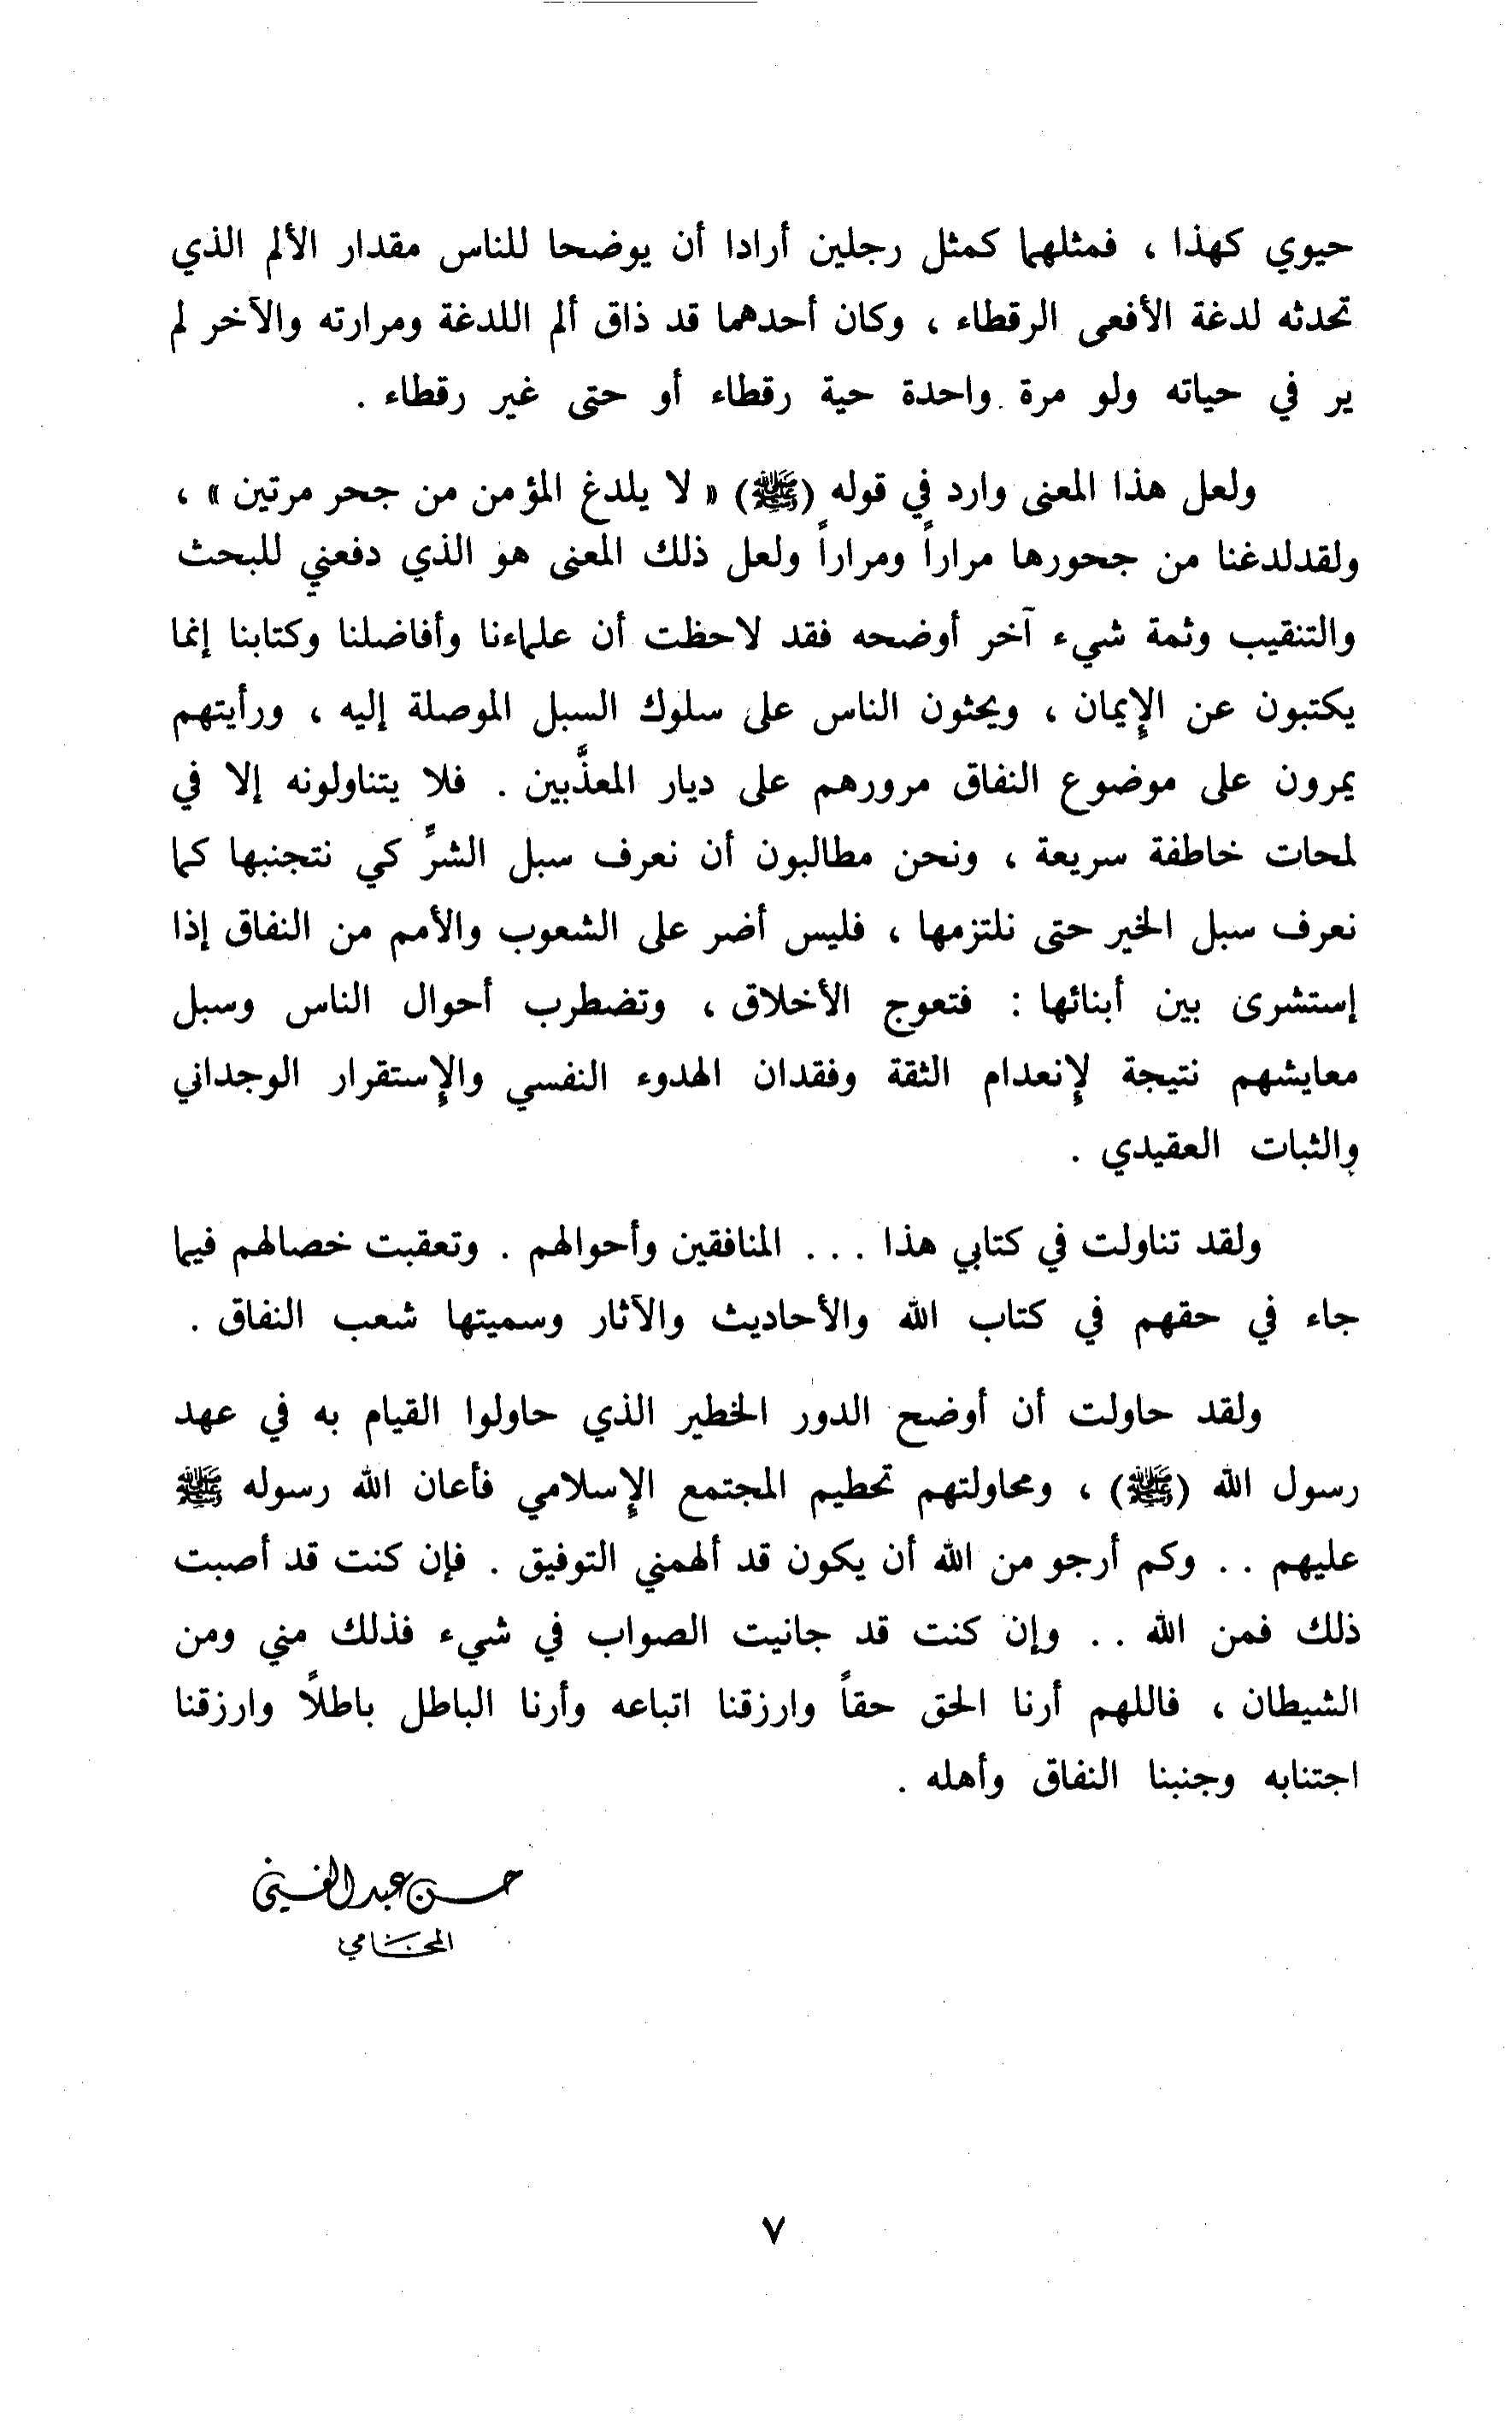 حيوي كهذا ، فمثلهما كمثل رجلين أرادا أن يوضحا للناس مقدار الألم الذي
تحدثه لدغة الأفعى الرقطاء ، وكان أحدهما قد ذاق ألم اللدغة ومرارته والآخر لم
ير في حياته ولو مرة واحدة حية رقطاء أو حتى غير رقطاء .
ولعل هذا المعنى وارد في قوله (ﷺ) « لا يلدغ المؤمن من جحر مرتين » ،
ولقدلدغنا من جحورها مراراً ومراراً ولعل ذلك المعنى هو الذي دفعني للبحث
والتنقيب وثمة شيء آخر أوضحه فقد لاحظت أن علماءنا وأفاضلنا وكتابنا إنما
يكتبون عن الإيمان ، ويحثون الناس على سلوك السبل الموصلة إليه ، ورأيتهم
يمرون على موضوع النفاق مرورهم على ديار المعذَّبين . فلا يتناولونه إلا في
لمحات خاطفة سريعة ، ونحن مطالبون أن نعرف سبل الشرَّ كي نتجنبها كما
نعرف سبل الخير حتى نلتزمها ، فليس أضر على الشعوب والأمم من النفاق إذا
إستشرى بين أبنائها : فتعوج الأخلاق ، وتضطرب أحوال الناس وسبل
معايشهم نتيجة لإنعدام الثقة وفقدان الهدوء النفسي والإستقرار الوجداني
والثبات العقيدي .
ولقد تناولت في كتابي هذا . . . المنافقين وأحوالهم . وتعقبت خصالهم فيما
جاء في حقهم في كتاب الله والأحاديث والآثار وسميتها شعب النفاق .
ولقد حاولت أن أوضح الدور الخطير الذي حاولوا القيام به في عهد
رسول الله (ﷺ) ، ومحاولتهم تحطيم المجتمع الإسلامي فأعان الله رسوله ﷺ
عليهم . . وكم أرجو من الله أن يكون قد ألهمني التوفيق . فإن كنت قد أصبت
ذلك فمن الله . . وإن كنت قد جانيت الصواب في شيء فذلك مني ومن
الشيطان ، فاللهم أرنا الحق حقاً وارزقنا اتباعه وأرنا الباطل باطلاً وارزقنا
اجتنابه وجنبنا النفاق وأهله .
حسن عبد الغني
المحامي
٧